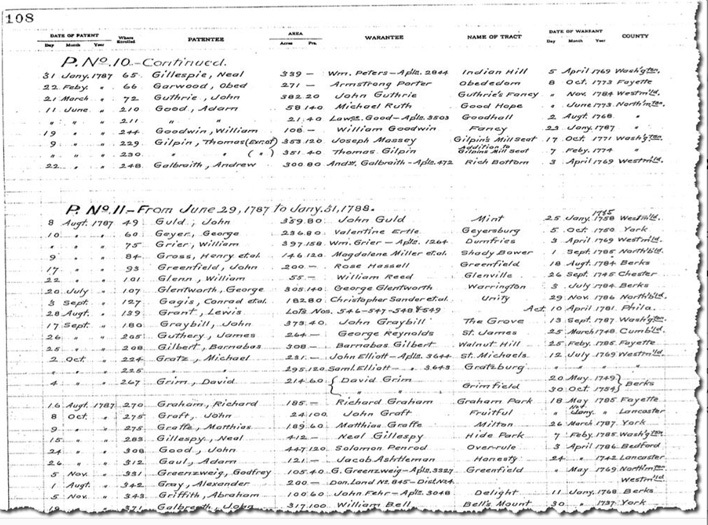 108
DATE OF PATENT Where Enrolled PATENTEE AREA WARRANTEE NAME OF TRACT DATE OF WARRANT COUNTY
Day Month Year Acres Prs. Day Month Year
P. No. 10.—Continued.
31 Jany. 1787 65 Gillespie, Neal 339 — Wm. Peters—Apln. 2844 Indian Hill 5 April 1769 Washgtn.
22 Feby. " 66 Garwood, Obed 271 — Armstrong Porter Obededom 8 Oct. 1773 Fayette
21 March " 72 Guthrie, John 382.20 John Guthrie Guthrie's Fancy " Nov. 1784 Westmld.
11 June " 210 Good, Adam 58.140 Michael Ruth Good Hope " June 1773 Northmtn.
" " " 211 " " 21.40 Lawz. Good—Apln. 3503 Goodhall 2 Augt. 1768 "
19 " " 244 Goodwin, William 108 — William Goodwin Fancy 23 Jany. 1787 "
9 " " 229 Gilpin, Thomas (Exr. of) 353.120 Joseph Massey Gilpin's Mill Seat 17 Oct. 1771 Washgtn.
" " " 230 " " ( " ) 351.40 Thomas Gilpin Addition to Gilpins Mill Seat 7 Feby. 1774 "
22 " " 248 Galbraith, Andrew 300.80 Andw. Galbraith—Apln. 472 Rich Bottom 3 April 1769 Westmld.
P. No. 11—From June 29, 1787 to Jany. 31, 1788.
8 Augt. 1787 49 Guld, John 359.80 John Guld Mint 25 Jany. 1785 Westmld.
10 " " 60 Geyer, George 236.80 Valentine Ertle Geyersburg 5 Oct. 1750 York
" " " 75 Grier, William 397.158 Wm. Grier—Apln. 1264 Dumfries 3 April 1769 Westmld.
9 " " 84 Gross, Henry et al. 146.120 Magdalene Miller et al. Shady Bower 1 Sept. 1785 Northbld.
17 " " 93 Greenfield, John 200 — Rose Hassell Greenfield 18 Augt. 1784 Berks
22 " " 101 Glenn, William 55 — William Reed Glenville 26 Sept. 1745 Chester
20 July " 107 Glentworth, George 305.140 George Glentworth Warrington 3 July 1784 Berks
3 Sept. " 127 Gagis, Conrad et al. 182.80 Christopher Sander et al. Unity 29 Nov. 1786 Northbld.
28 Augt. " 139 Grant, Lewis Lots Nos. 546-547-548 & 549 Act 10 April 1781 Phila.
17 Sept. " 180 Graybill, John 373.40 John Graybill The Grove 13 Sept. 1787 Washgtn.
26 " " 205 Guthery, James 264 — George Reynolds St. James 25 March 1748 Cumbld.
25 " " 208 Gilbert, Barnabas 308 — Barnabas Gilbert Walnut Hill 25 Feby. 1785 Fayette
2 Oct. " 224 Gratz, Michael 231 — John Elliott—Apln. 3644 St. Michaels 12 July 1769 Westmld.
" " " 225 " " 295.120 Saml. Elliott— " 3643 Gratzburg " " " "
4 " " 267 Grim, David 214.60 {David Grim Grimfield 20 May 1749} Berks
30 Oct. 1754
16 Augt. 1787 270 Graham, Richard 185 — Richard Graham Graham Park 18 May 1785 Fayette
8 Oct. " 275 Graft, John 24.100 John Graft Fruitful " Jany. " Lancaster
9 " " 275 Graffe, Matthias 189.60 Matthias Graffe Milton 26 March 1787 York
15 " " 283 Gillespy, Neal 412 — Neal Gillespy Hide Park 7 Feby. 1785 Washgtn.
24 " " 308 Good, John 447.120 Solomon Penrod Over-rule 3 April 1786 Bedford
26 " " 312 Gaul, Adam 121 — Jacob Ashtleman Honesty 24 " 1742 Lancaster
5 Nov. " 331 Greenzweig, Godfrey 105.40 G. Greenzweig—Apln. 3327 Greenfield " May 1769 Northmtn.
1 Augt. " 342 Gray, Alexander 200 — Don. Land No. 845—Dist. No. 4. Westmld.
5 Nov. " 343 Griffith, Abraham 100.60 John Fehr—Apln. 3048 Delight 11 Jany. 1768 Berks
19 " " 371 Galbreath, John 317.100 William Bell Bell's Mount 30 " 1737 York